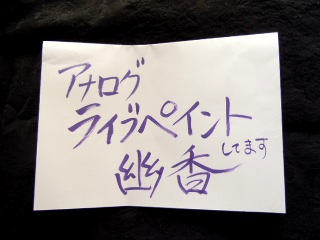 アナログ
ライブペイント
してます
幽香